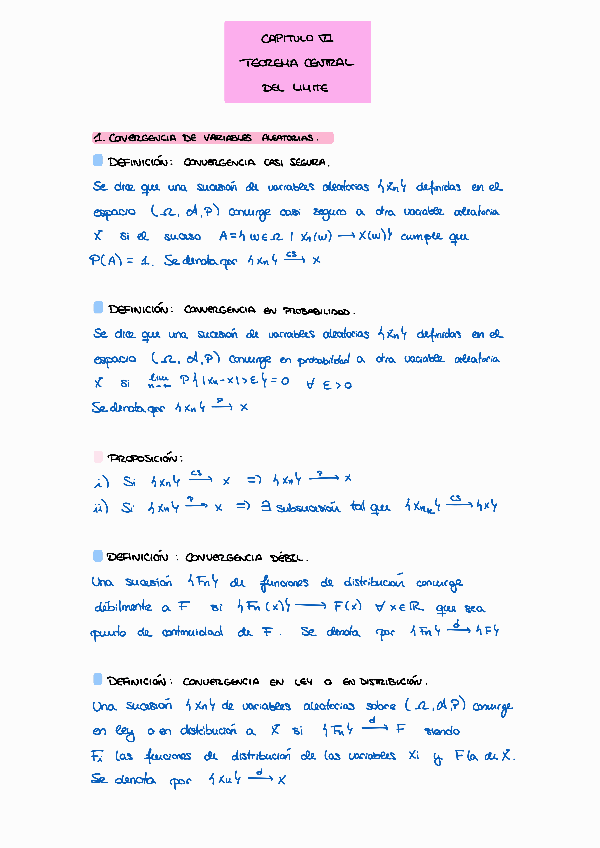 CAPITULO VI
TEOREMA CENTRAL
DEL LIMITE
1. CONVERGENCIA DE VARIABLES ALEATORIAS.
DEFINICIÓN: CONVERGENCIA CASI SEGURA.
Se dice que una sucesión de variables aleatorias {Xn} definidas en el
espacio (Ω, A, P) converge casi seguro a otra variable aleatoria
X si el suceso A = {ω ∈ Ω | Xn(ω) → X(ω)} cumple que
P(A) = 1. Se denota por {Xn} —cs→ X
DEFINICIÓN: CONVERGENCIA EN PROBABILIDAD.
Se dice que una sucesión de variables aleatorias {Xn} definidas en el
espacio (Ω, A, P) converge en probabilidad a otra variable aleatoria
X si lim n→∞ P{|Xn - X| > ε} = 0 ∀ ε > 0
Se denota por {Xn} —P→ X
PROPOSICIÓN:
i) Si {Xn} —cs→ X => {Xn} —P→ X
ii) Si {Xn} —P→ X => ∃ subsucesión tal que {Xnk} —cs→ {X}
DEFINICIÓN: CONVERGENCIA DÉBIL.
Una sucesión {Fn} de funciones de distribución converge
débilmente a F si {Fn(x)} → F(x) ∀ x ∈ ℝ que sea
punto de continuidad de F. Se denota por {Fn} —d→ {F}
DEFINICIÓN: CONVERGENCIA EN LEY O EN DISTRIBUCIÓN.
Una sucesión {Xn} de variables aleatorias sobre (Ω, A, P) converge
en ley o en distribución a X si {Fn} —d→ F siendo
Fi las funciones de distribución de las variables Xi y F la de X.
Se denota por {Xn} —d→ X